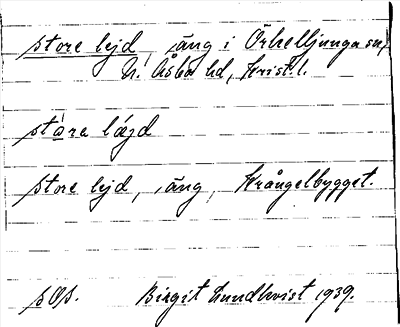 store lejd, äng i Örkelljunga sn,
N. Åsbo hd, Krist. l.
stára lǽjd
store lejd, äng, Krångelbygget.
sOs. Birgit Lundkvist 1939.